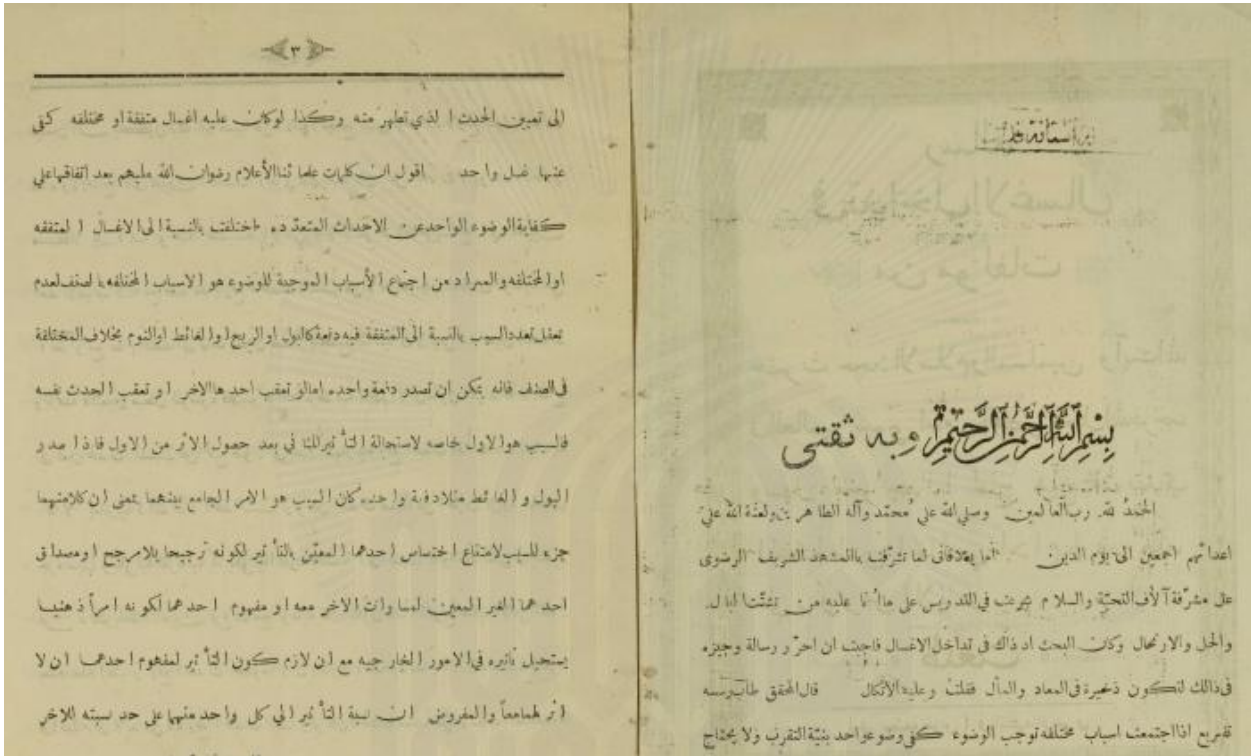 بسم الله الرحمن الرحیم و به ثقتی
الحمدُ للهِ رب العالمین وصلی الله علی محمّد وآله الطاهرین ولعنة الله علی
اعدائهم اجمعین الی یوم الدین اما بعد فانی لما تشرّفت بالمشهد الشریف الرضوی
علی مشرّفة آلاف التحیّة والسلام شرعت فی التدریس علی ما أنا علیه من تشتّت البال
والحل والارتحال وکان البحث اذ ذاك فی تداخل الاغسال فاجبت ان احرّر رسالة وجیزه
فی ذالك لتکون ذخیرة فی المعاد والمآل فقلت وعلیه الاتکال قال المحقق طاب رمسه
تفریع اذا اجتمعت اسباب مختلفه توجب الوضوء کفی وضوء واحد بنیّة التقرب ولا یحتاج
٣
الی تعیین الحدث الذي تطهر منه وکذا لوکان علیه اغسال متفقة او مختلفه کفی
عنها غسل واحد اقول ان کلمات علمائنا الأعلام رضوان الله علیهم بعد اتفاقها علی
کفایة الوضوء الواحد عن الاحداث المتعدّده اختلفت بالنسبة الی الاغسال المتفقه
او المختلفه والمراد من اجتماع الأسباب الموجبة للوضوء هو الاسباب المختلفه بالصنف لعدم
تعقل تعدد السبب بالنسبة الی المتفقة فیه دفعة کالبول او الریح او الغائط او النوم بخلاف المختلفة
فی الصنف فانه یمکن ان تصدر دفعة واحده امالو تعقب احدها الاخر او تعقب الحدث نفسه
فالسبب هو الاول خاصه لاستحالة التأثیر للثانی بعد حصول الاثر من الاول فاذا صدر
البول و الغائط مثلا دفعة واحده کان السبب هو الامر الجامع بینهما بمعنی ان کلا منهما
جزء للسبب لامتناع اختصاص احدهما المعیّن بالتأثیر لکونه ترجیحا بلا مرجح او مصداق
احدهما الغیر المعین لمساوات الاخر معه او مفهوم احدهما لکونه امرأ ذهنیا
یستحیل تاثیره فی الامور الخارجیه مع ان لازم کون التأثیر لمفهوم احدهما ان لا
اثر لهما معاً والمفروض ان نسبة التأثیر الي کل واحد منهما علی حد نسبته للاخر